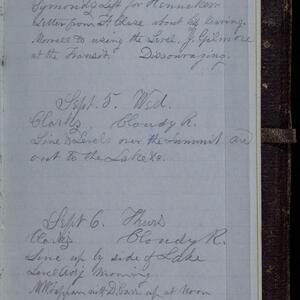 Symonds left for Henniker.
Letter from St. Clare about his leaving.
Morrell to using the Level, J. Gilmore
at the Transit. Discouraging.
Sept. 5. Wed.
Clarks Cloudy R.
Line & Levels over the Summit are
out to the Lake &c.
Sept 6. Thurs
Clarks Cloudy R.
Line up by side of Lake
Level Adj Morning.
with D. Carr up at Noon